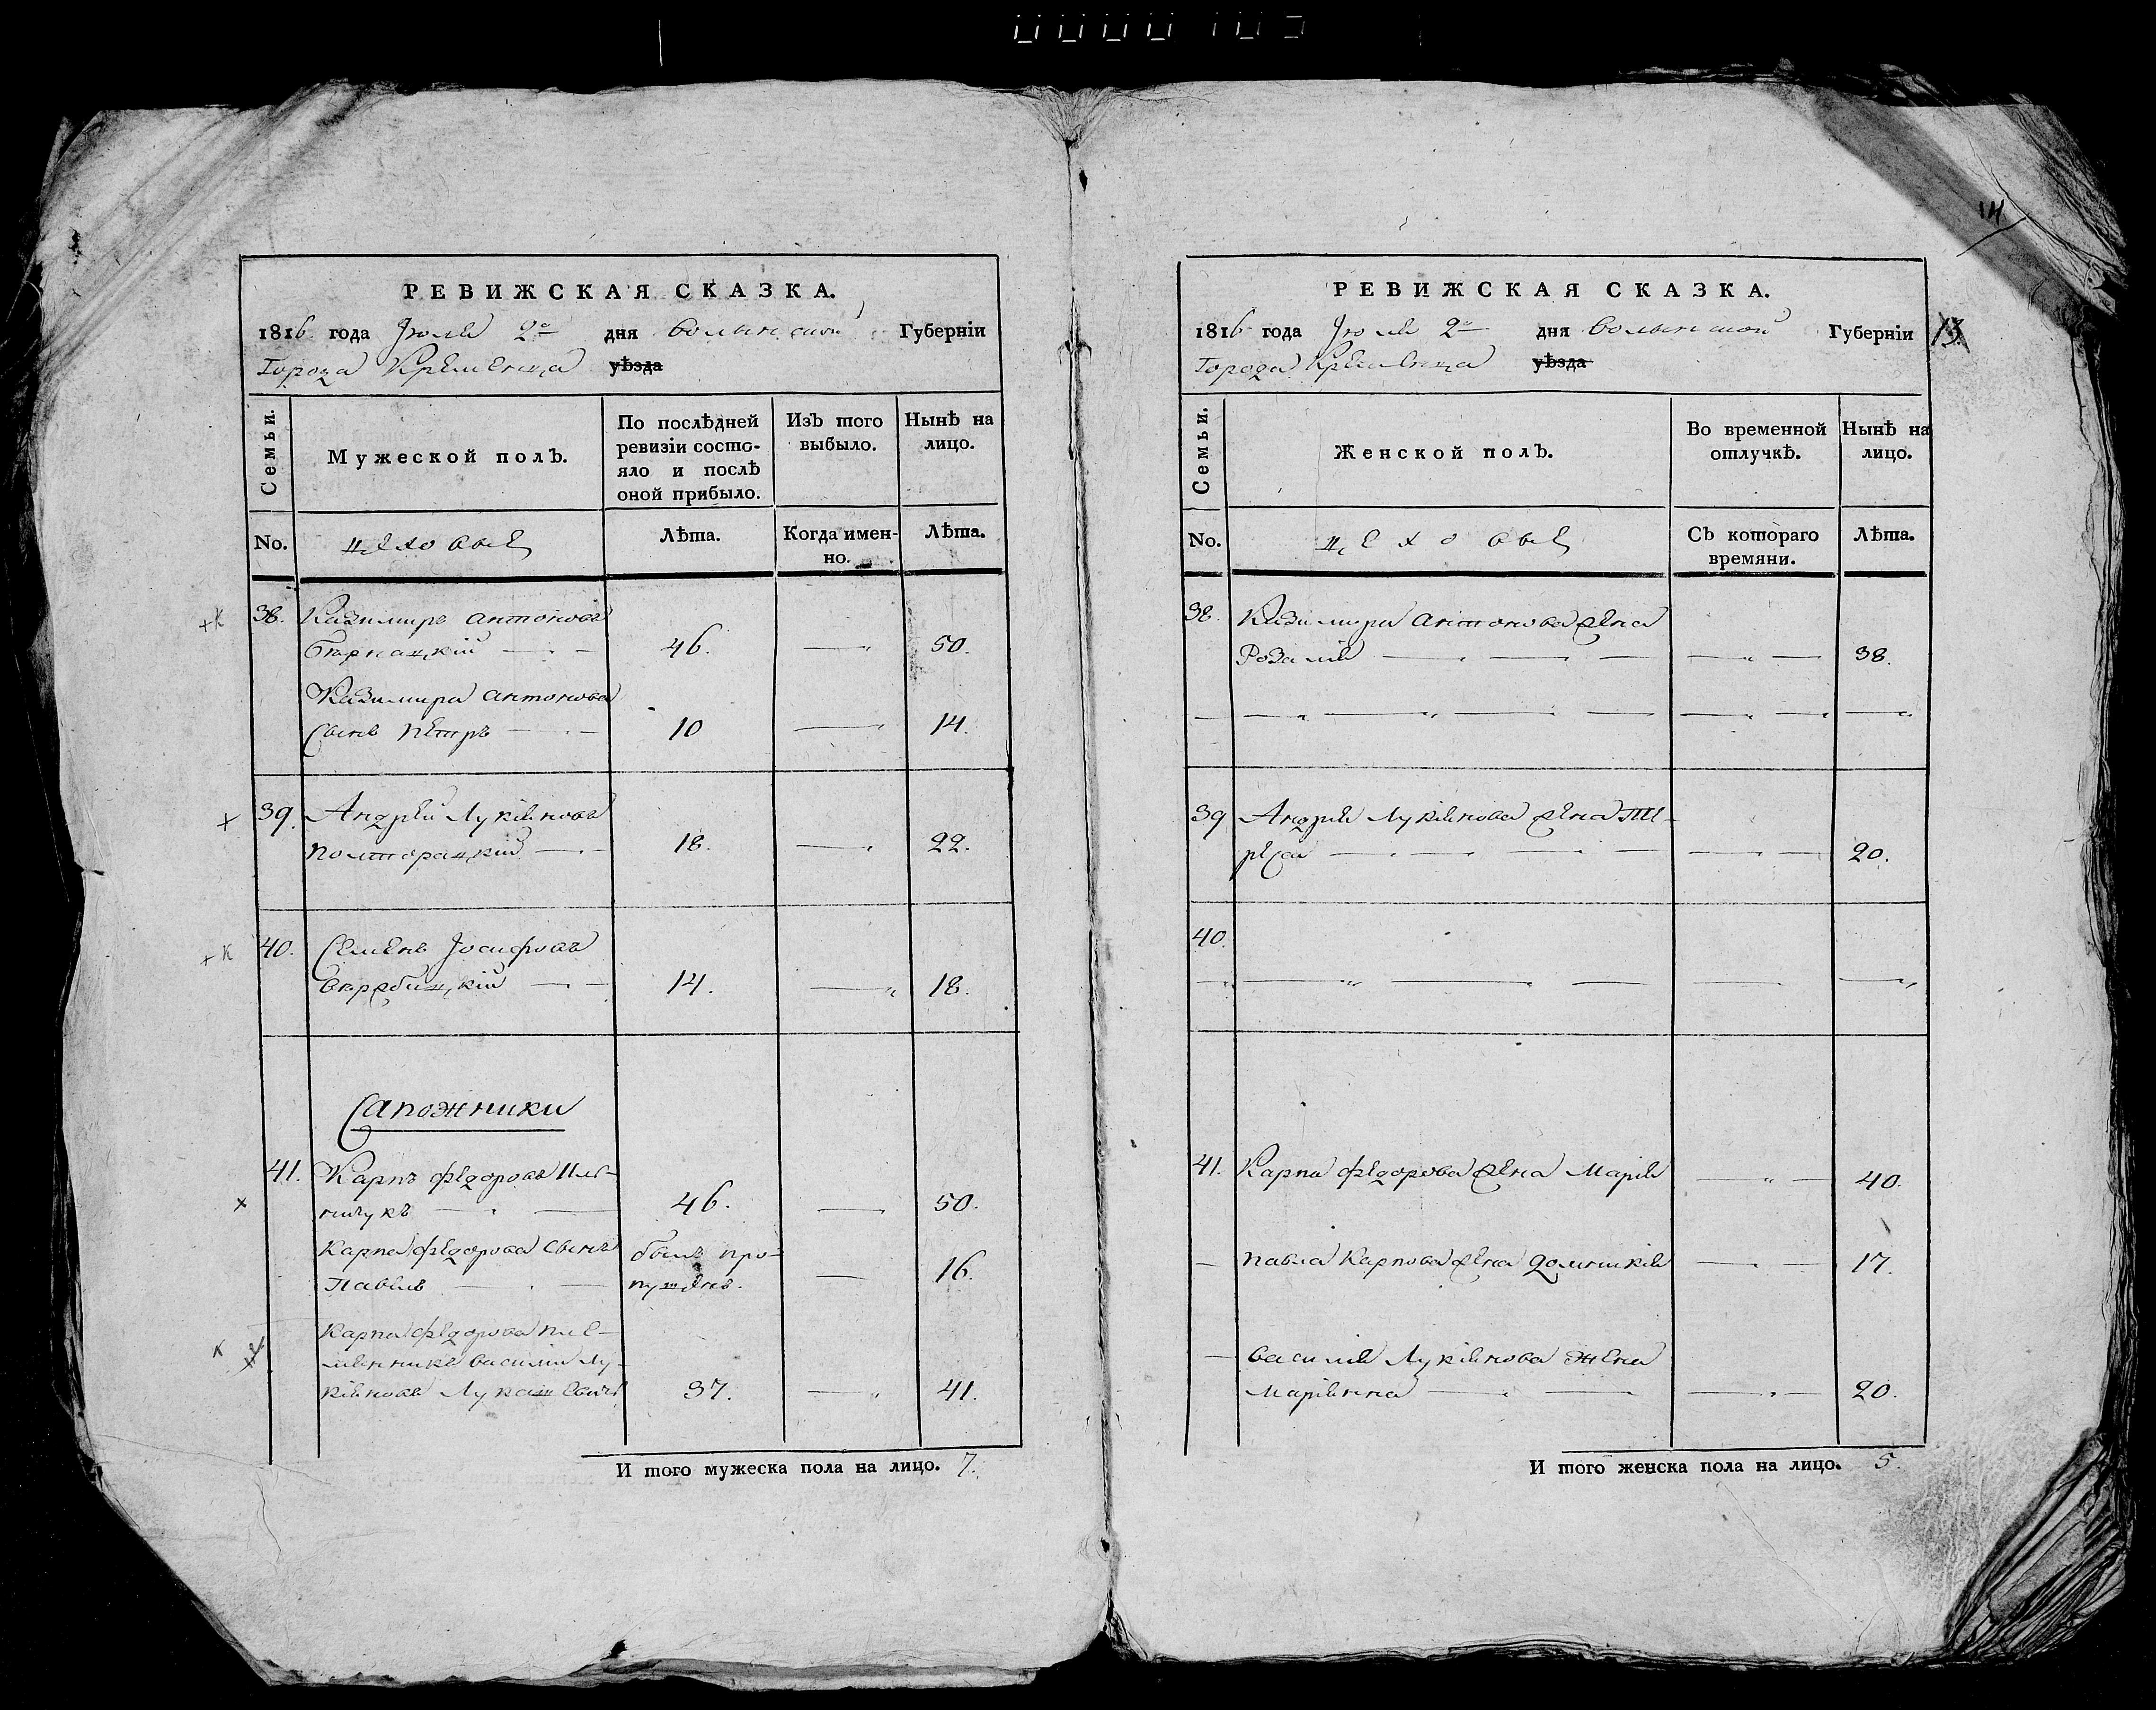 РЕВИЖСКАЯ СКАЗКА.
1816 года Іюля 2го дня Волынской Губерніи
Города Кременца уѣзда
Семьи.
Мужеской полЪ.
По послѣдней ревизіи состо-
яло и послѣ
оной прибыло.
ИзЪ того
выбыло.
НынѢ на
лицо.
No.
цеховые
Лѣта.
Когда имен-
но.
Лѣта.
38. Казимиръ Антоновъ
Бернацкій 46. 50.
Казимира Антонова
Сынъ Петръ 10 14.
39. Андрей Лукіяновъ
Полторацкій 18. 22.
40. Семенъ Іосифовъ
Вербицкій 14. 18.
Сапожники
41. Карпъ Федоровъ
46. 50.
Карпа Федорова Сынъ
Павелъ
былъ про-
пущенъ. 16.
Карпа Федорова пле-
мянникъ Василій Лу-
кіяновъ Лукашевичъ 37. 41.
И того мужеска пола на лицо. 7.
14
РЕВИЖСКАЯ СКАЗКА.
1816 года Іюля 2го дня Волынской Губерніи 13
Города Кременца уѣзда
Семьи.
Женской полЪ.
Во временной
отлучкѣ.
НынѢ на
лицо.
No.
цеховые
СЪ котораго
времяни.
Лѣта.
38. Казимира Антонова жена
Розалія 38.
39 Андрея Лукіянова жена Те-
реса 20.
40.
41. Карпа Федорова жена Марія 40.
Павла Карпова жена Домникія 17.
Василія Лукіянова жена
Маріянна 20.
И того женска пола на лицо. 5.